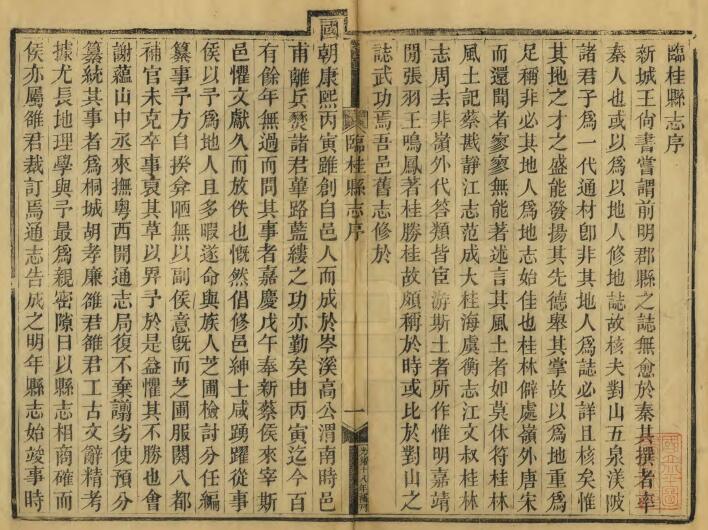 臨桂縣志序
新城王尙書嘗謂前明郡縣之誌無愈於秦其撰者率
秦人也或以爲以地人修地誌故核夫對山五泉渼陂
諸君子爲一代通材卽非其地人爲誌必詳且核矣惟
其地之才之盛能發揚其先德舉其掌故以爲地重爲
足稱非必其地人爲地志始佳也桂林僻處嶺外唐宋
而還聞者寥寥無能著述言其風土者如莫休符桂林
風土記蔡戡靜江志范成大桂海虞衡志江文叔桂林
志周去非嶺外代答類皆宦游斯土者所作惟明嘉靖
閒張羽王鳴鳳著桂勝桂故頗稱於時或比於對山之
誌武功焉吾邑舊志修於
臨桂縣志序
一
國朝康熙丙寅雖創自邑人而成於岑溪高公渭南時邑
甫離兵燹諸君篳路藍縷之功亦勤矣由丙寅迄今百
有餘年無過而問其事者嘉慶戊午奉新蔡侯來宰斯
邑懼文獻久而放佚也慨然倡修邑紳士咸踴躍從事
侯以予爲地人且多暇遂命與族人芝圃檢討分任編
纂事予方自揆弇陋無以副侯意旣而芝圃服闋入都
補官未克卒事裒其草以畀予於是益懼其不勝也會
謝蘊山中丞來撫粵西開通志局復不棄譾劣使預分
纂統其事者爲桐城胡孝廉雒君雒君工古文辭精考
據尤長地理學與予最爲親密隙日以縣志相商確而
侯亦屬雒君裁訂焉通志告成之明年縣志始竣事時